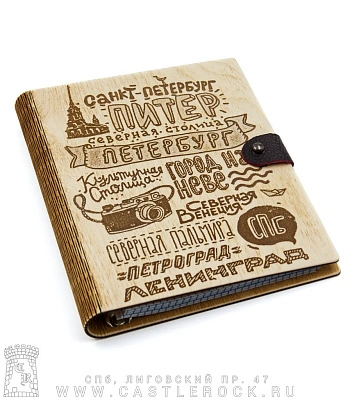 САНКТ-ПЕТЕРБУРГ
ПИТЕР
СЕВЕРНАЯ СТОЛИЦА
ПЕТЕРБУРГ
Культурная
Столица
ГОРОД НА
НЕВЕ
СЕВЕРНАЯ
ВЕНЕЦИЯ
СПб
СЕВЕРНАЯ ПАЛЬМИРА
ПЕТРОГРАД
ЛЕНИНГРАД
СПб, ЛИГОВСКИЙ ПР. 47
WWW.CASTLEROCK.RU